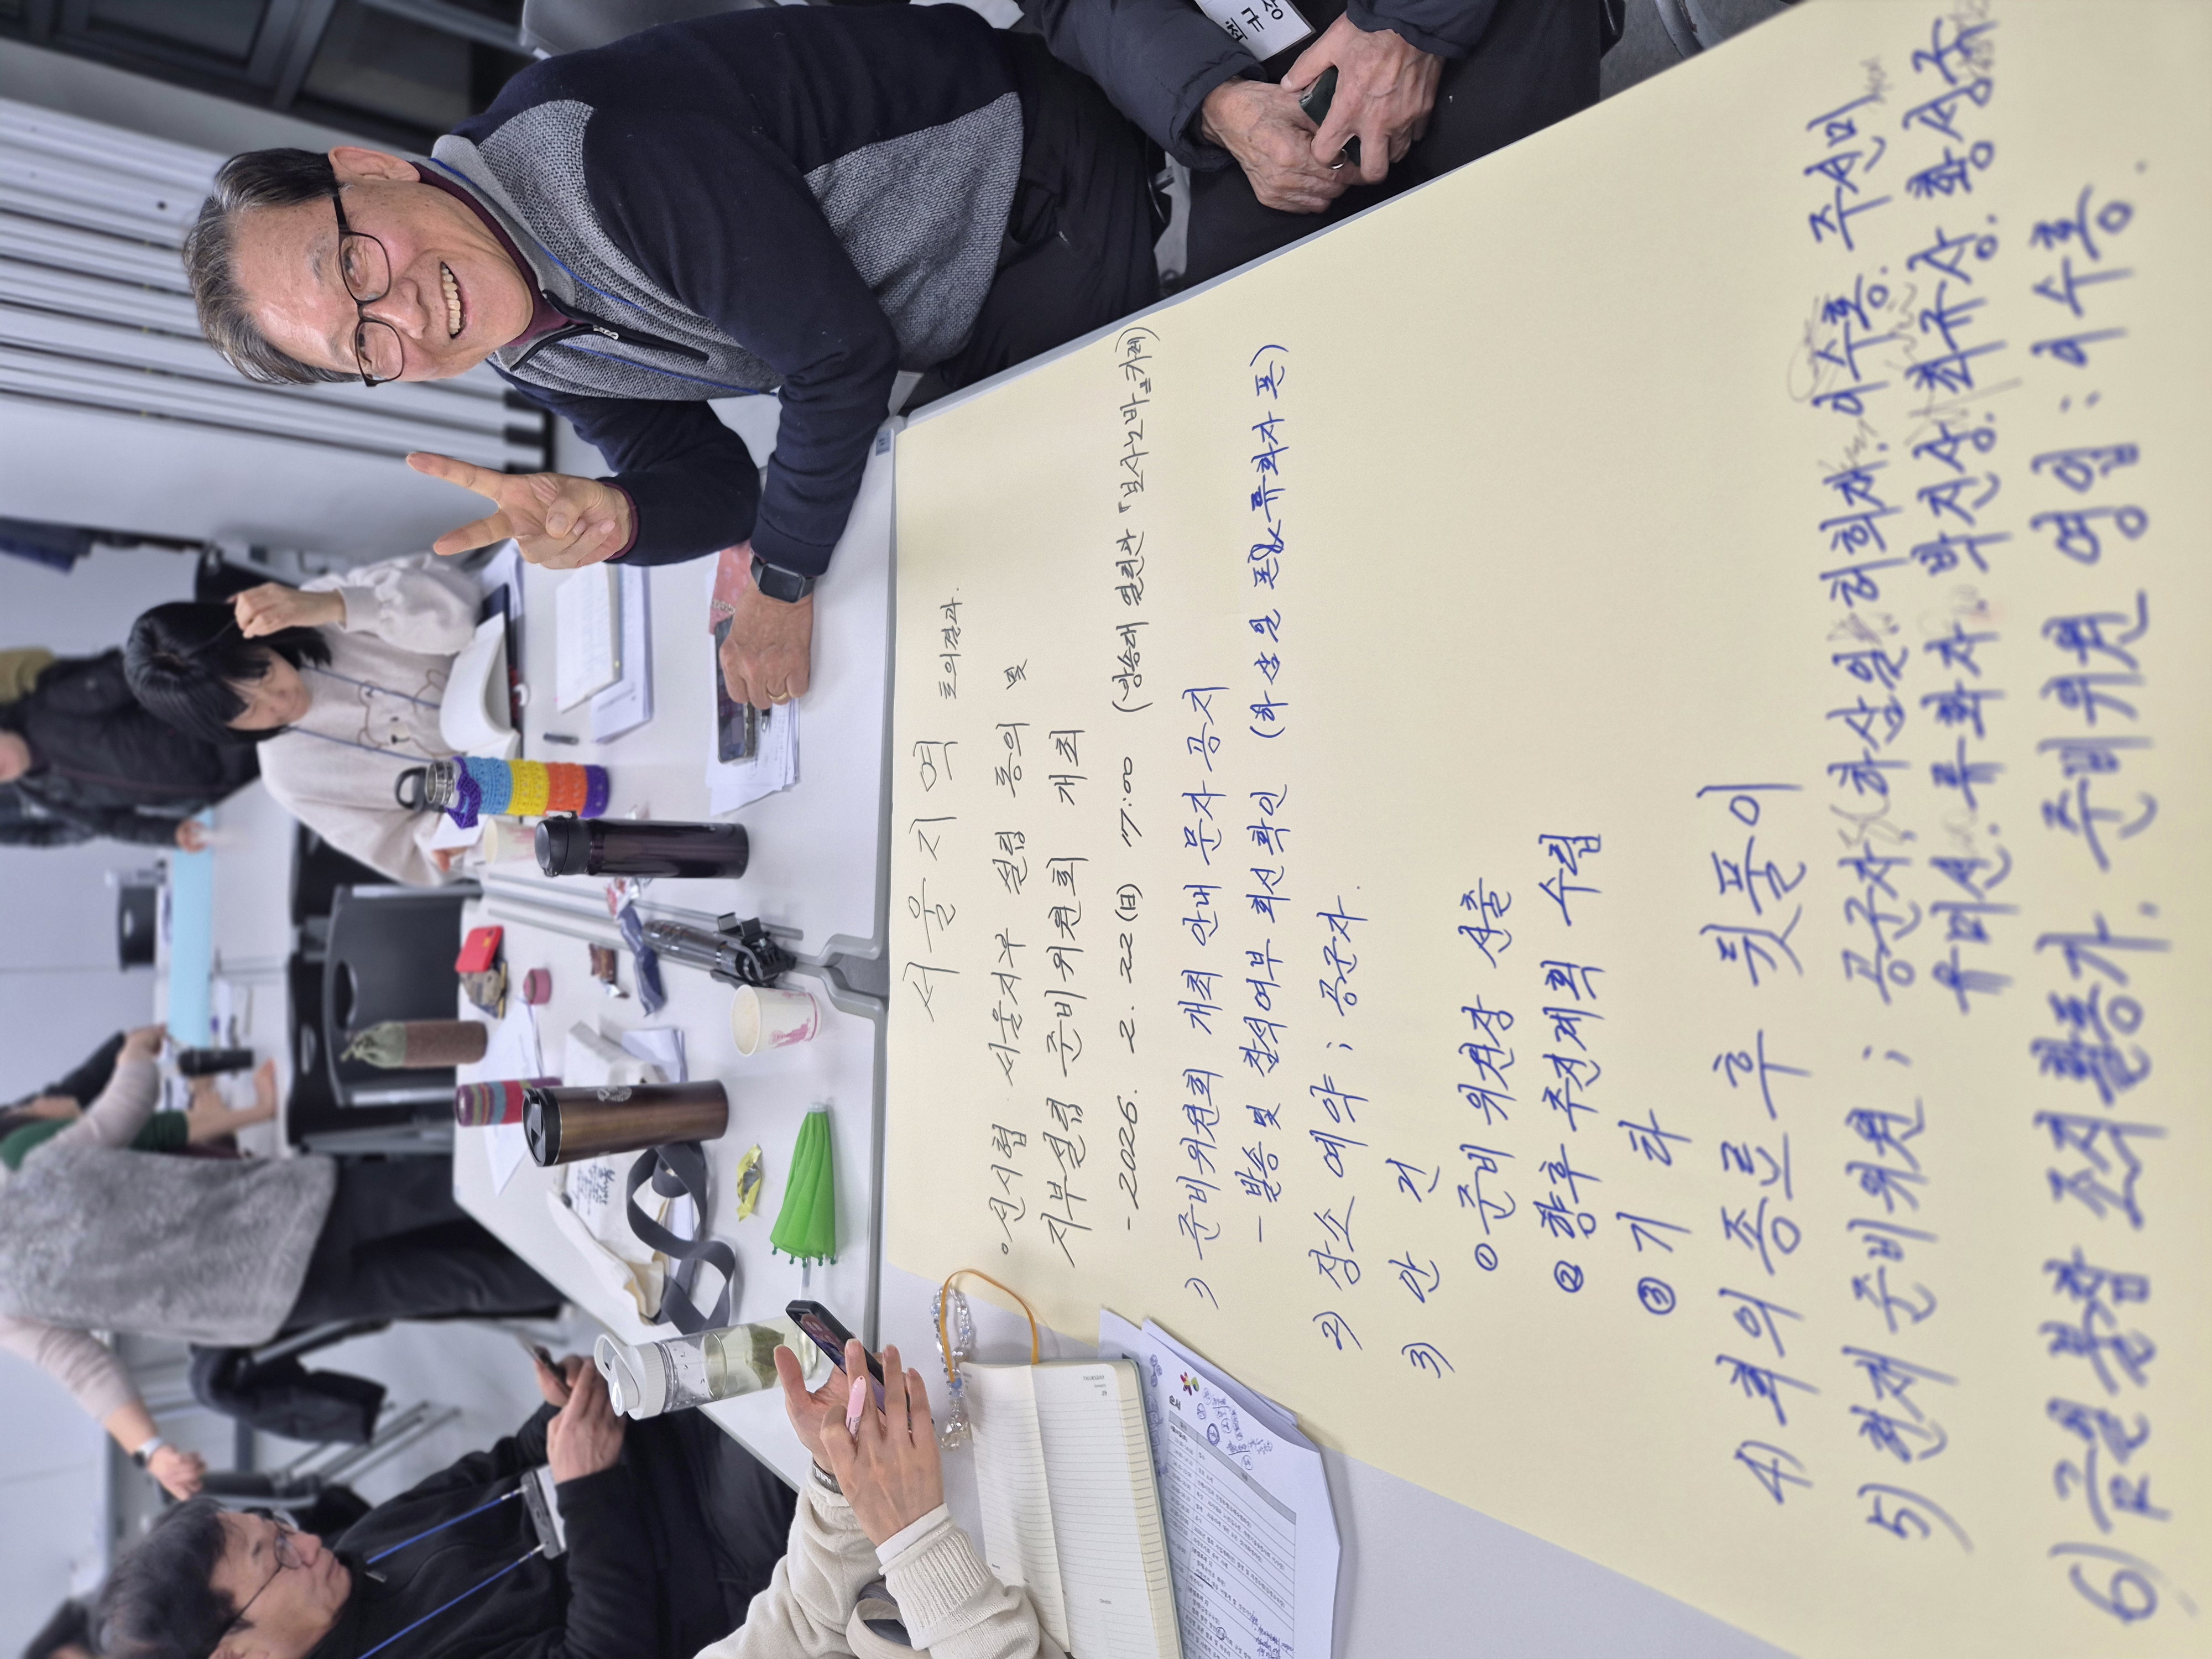 서울지역 토의결과.
◦신시협 서울지부 설립 동의 및
지부설립 준비위원회 개최
- 2026. 2. 22(日) 17:00 (방송대 열린관 「보사노바」카페)
1) 준비위원회 개최 안내 문자 공지
- 발송 및 참석여부 회신 확인 (하상일 표 & 류화자 표)
2) 장소 예약 ; 공군자.
3) 안 건
① 준비 위원장 선출
② 향후 추진계획 수립
③ 기 타
4) 회의 종료 후 뒷풀이
5) 현재 준비위원 ; 공군자, (하상일, 허희재, 이수홍, 주선미
유미선, 류화자, 박진상, 최규상, 황성주
6) 조직활동가, 준비위원 영입 : 이수홍.